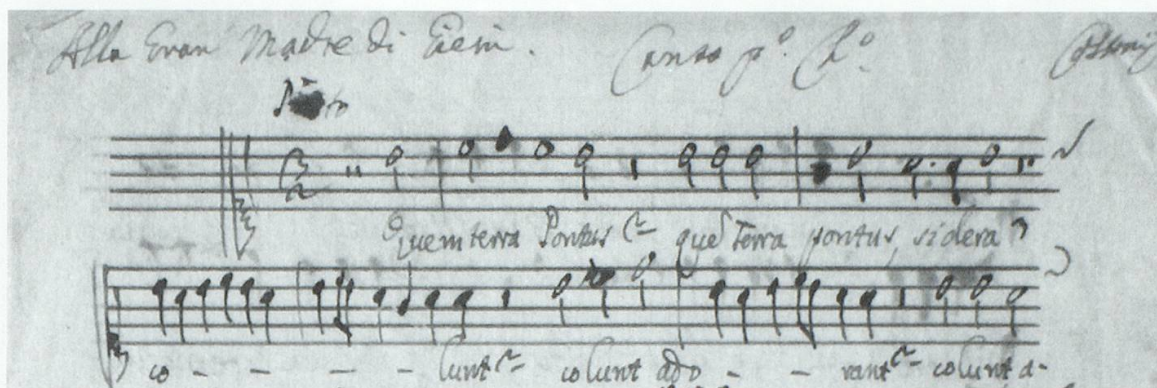 Alla Gran Madre di Canto p.º
Quem terra Pontus Terra pontus sidera
co - - - - lunt colunt ado - - rant colunt a-